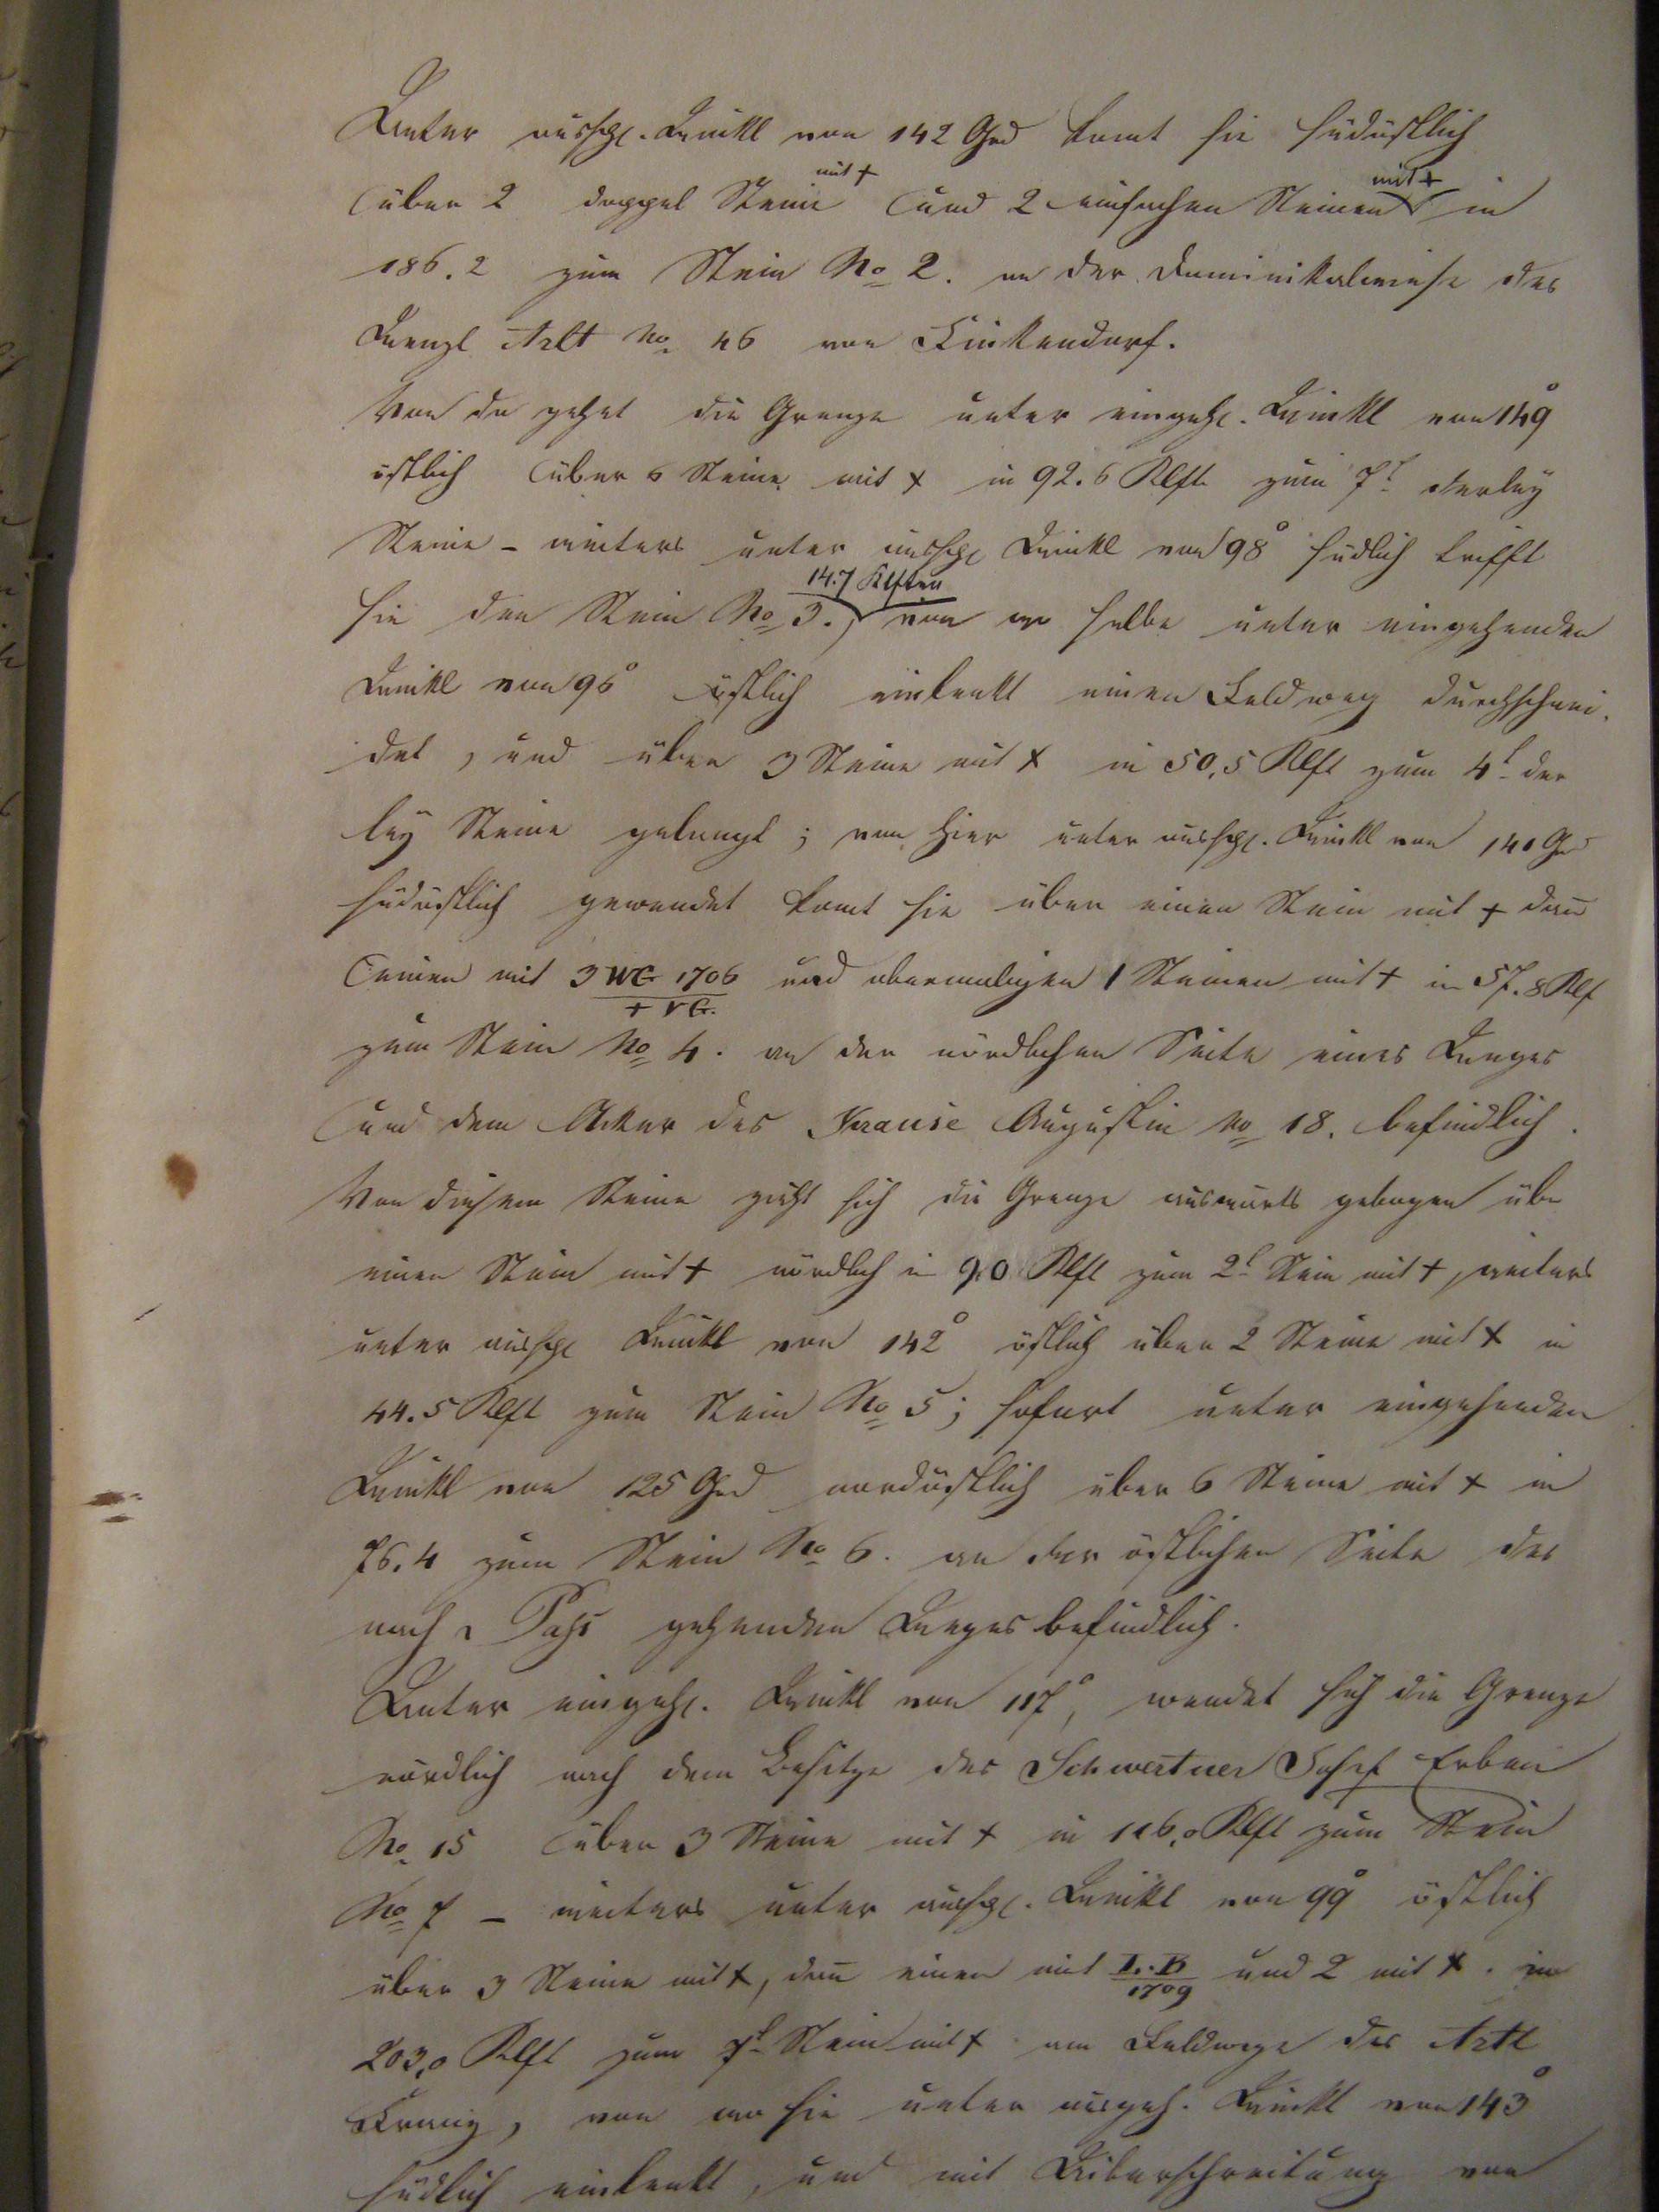 Unter ausspg. Winkl von 142 Grd komt sie südöstlich
über 2 doppel Steine mit + und 2 einfachen Steinen mit + in
186.2 zum Stein No 2. an der Dominikalwiese des
Wenzl Arlt No 46 von Finkendorf.
Von da gehet die Grenze unter eingeh. Winkl von 149°
östlich über 6 Steine mit + in 92.6 Klft. zum 7t derley
Steine – weiters unter ausspg Winkl von 98° südlich trifft
sie den Stein No 3., 14.7 Klften von wo selbe unter eingehenden
Winkl von 96° östlich einlenkt einen Feldweg durchschnei-
det, und über 3 Steine mit + in 50,5 Klft zum 4t der
ley Steine gelangt; von hier unter ausspg. Winkl von 140 Grd
südöstlich gewendet komt sie über einen Stein mit + dann
einen mit 3 WG 1706 + VG. und abermaligen 1 Steinen mit + in 57.8 Klf
zum Stein No 4. an der nördlichen Seite eines Weges
und dem Acker des Krause Augustin No 18. befindlich.
Von diesem Steine zieht sich die Grenze auswärts gebogen übe
einen Stein mit + nördlich in 9,0 Klft zum 2t Stein mit +, weiters
unter ausspg Winkl von 142° östlich über 2 Steine mit + in
44.5 Klft zum Stein No 5; sofort unter eingehenden
Winkl von 125 Grd nordöstlich über 6 Steine mit + in
76.4 zum Stein No 6. an der östlichen Seite des
nach Paß gehenden Weges befindlich.
Unter eingeh. Winkl von 117°, wendet sich die Grenze
nördlich nach dem Besitze des Schwertner Josef Erben
No 15 über 3 Steine mit + in 116,0 Klft zum Stein
No 7 – weiters unter ausspg. Winkl von 99° östlich
über 3 Steine mit +, dann einen mit I..B 1709 und 2 mit +. in
203,0 Klft zum 7t Stein mit + am Feldwege des Arlt
Franz, von wo sie unter ausgeh. Winkl von 143°
südlich einlenkt, und mit Überschreitung von